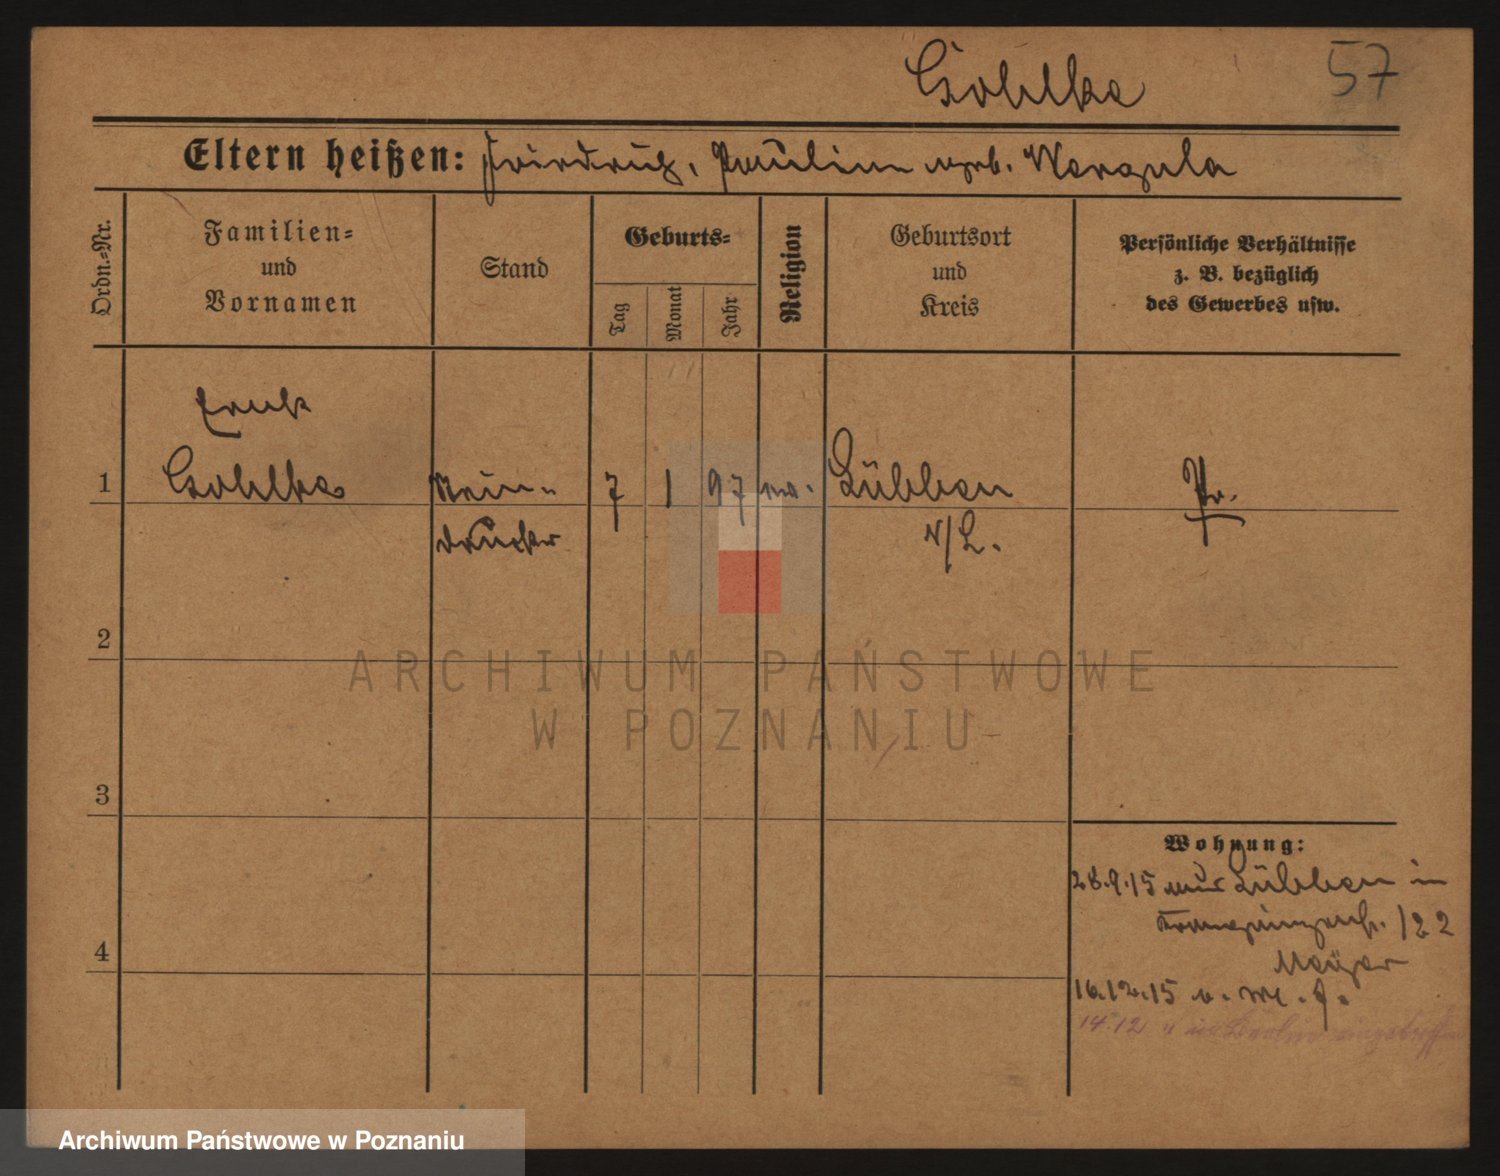 Gohlke 57
Eltern heißen: Friedrich, Pauline geb. Wergula
Ordn.-Nr.
Familien-
und
Vornamen
Stand
Geburts-
Tag
Monat
Jahr
Religion
Geburtsort
und
Kreis
Persönliche Verhältnisse
z. B. bezüglich
des Gewerbes usw.
Ernst
1 Gohlke Stein- 7 1 97 ev. Lübben Pr.
drucker N/L.
2
ARCHIWUM PAŃSTWOWE
W POZNANIU
3
Wohnung:
28.9.15 aus Lübben in
122
4
Meyer
16.12.15
14.12. in Berlin eingetroffen
Archiwum Państwowe w Poznaniu